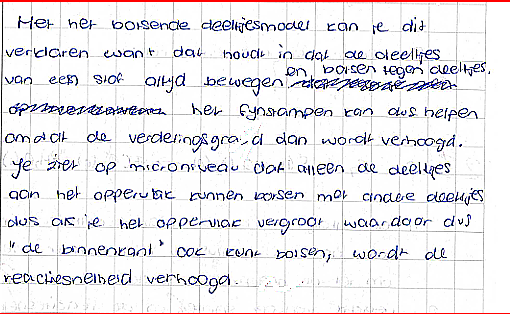 Met het botsende deeltjesmodel kan je dit
verklaren want dat houdt in dat de deeltjes
van een stof altijd bewegen en botsen tegen deeltjes.
het fijnstampen kan dus helpen
omdat de verdelingsgraad dan wordt verhoogd.
Je ziet op microniveau dat alleen de deeltjes
aan het oppervlak kunnen botsen met andere deeltjes
dus als je het oppervlak vergroot, waardoor dus
"de binnenkant" ook kunt botsen, wordt de
reactiesnelheid verhoogd.